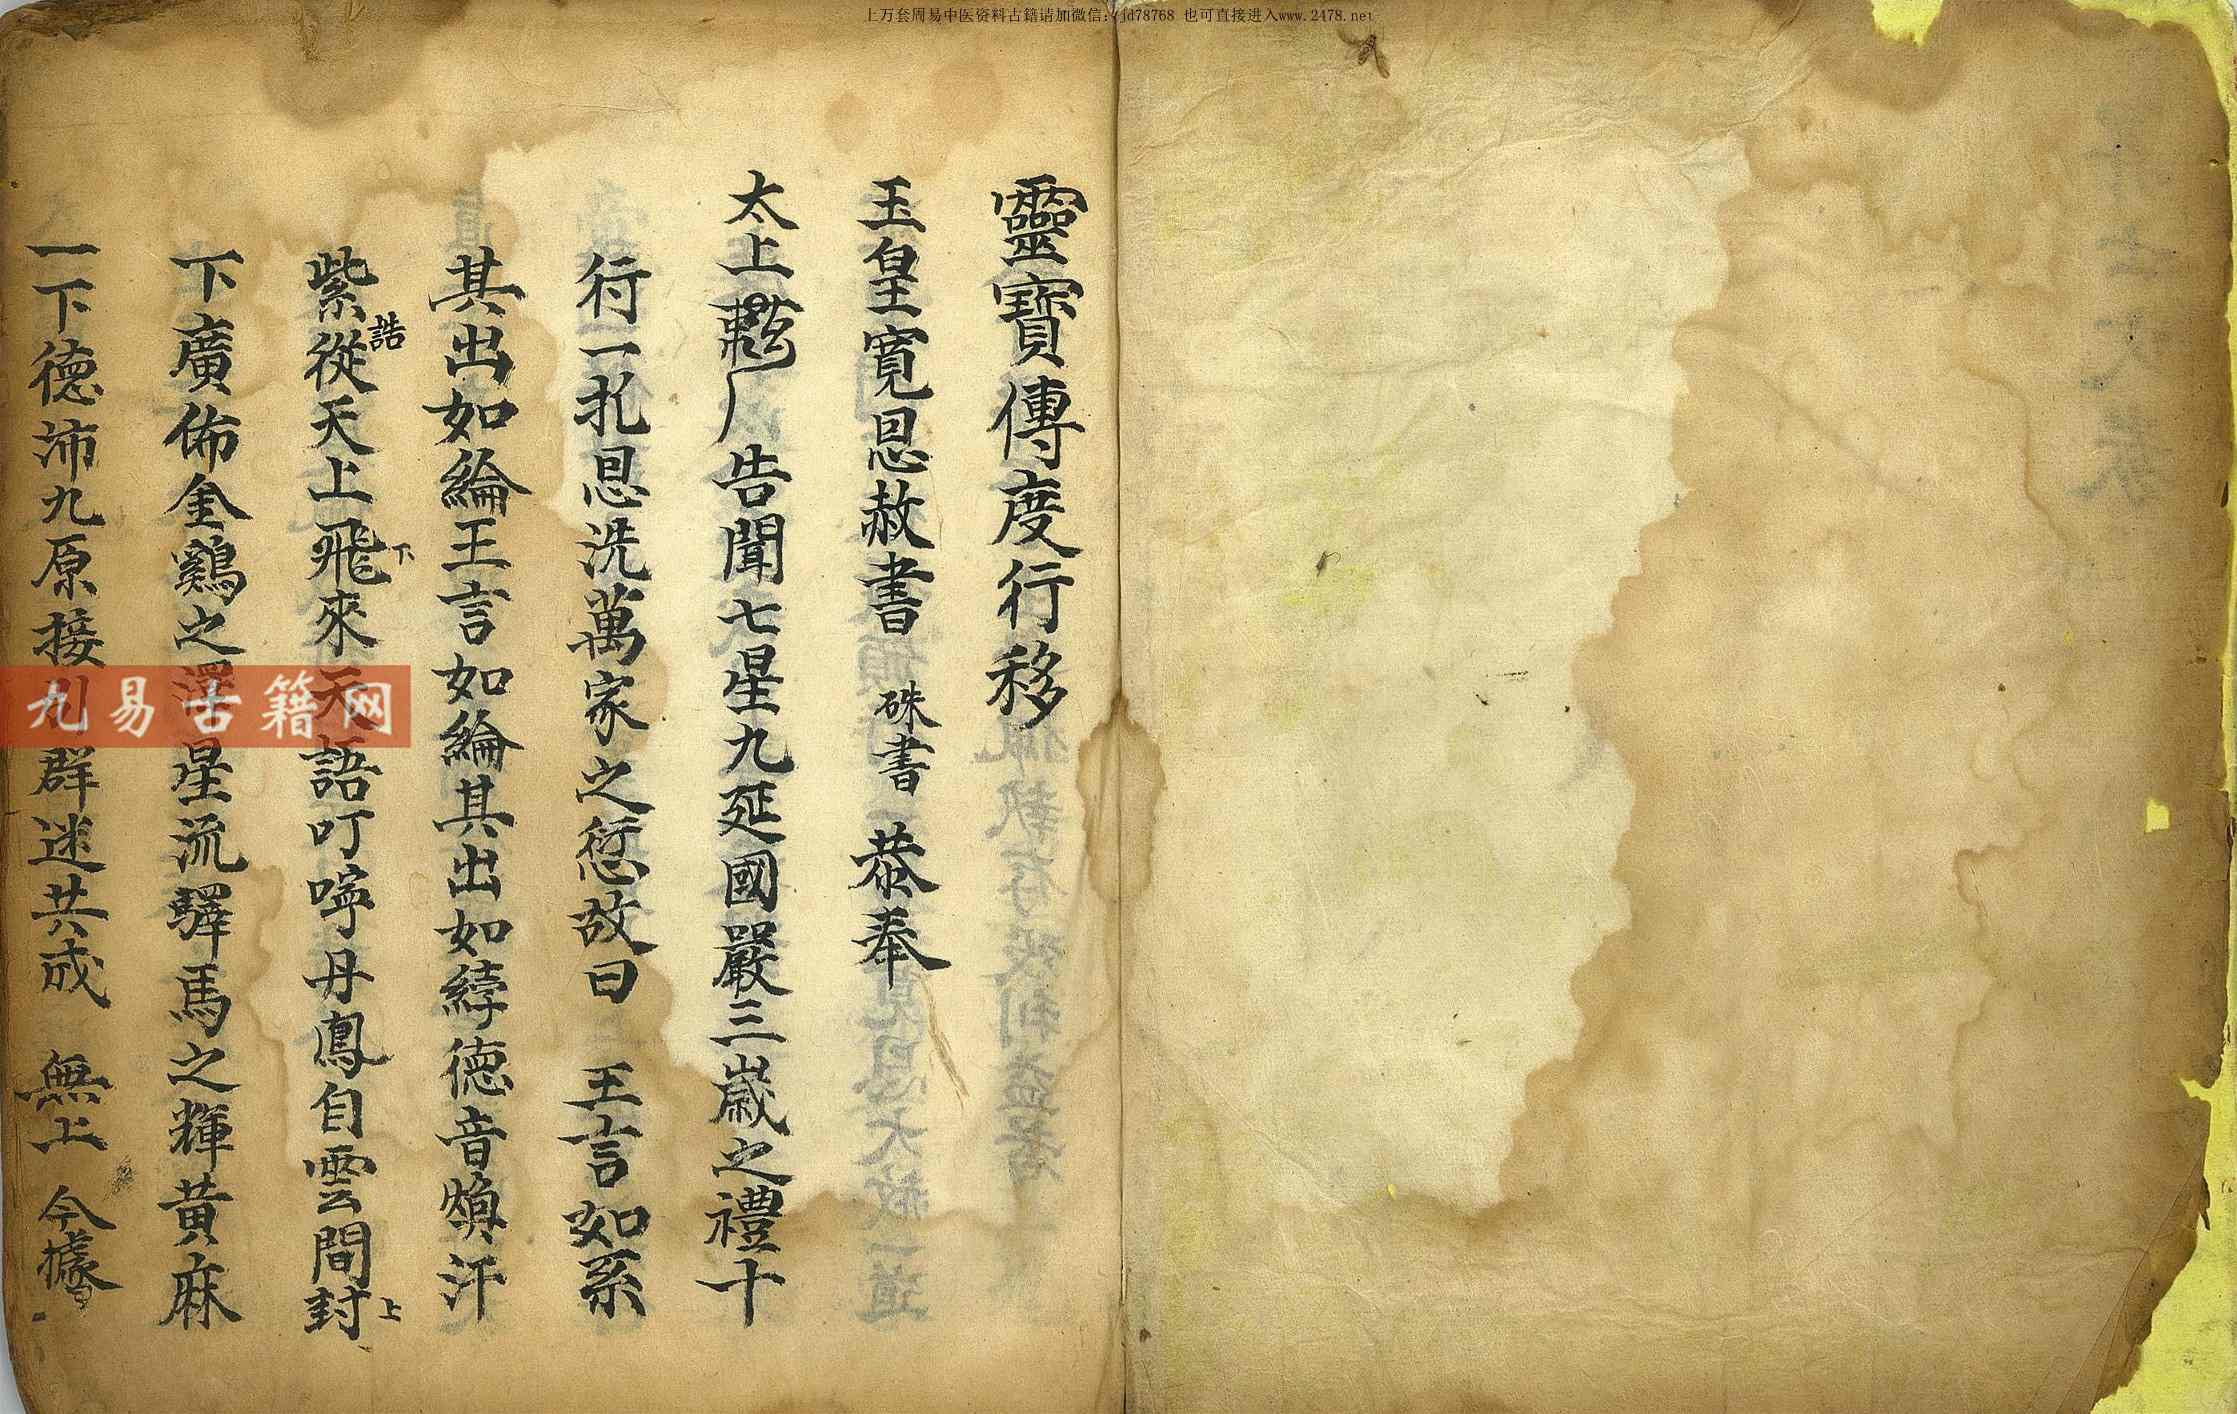 上万套周易中医资料古籍请加微信：jd78768 也可直接进入www.2478.net
靈寶傳度行移
玉皇寬恩赦書 硃書 恭奉
太上 告聞七星九延國嚴三歲之禮十
行一札恩洗萬家之愆故曰 王言如系
其出如綸王言如綸其出如綍德音煥汗
紫誥從天上飛下來天語叮嚀丹鳳自雲間封上
下廣佈金鷄之澤星流驛馬之輝黃麻
一下德沛九原接引群迷共成 無上 今據
九易古籍网